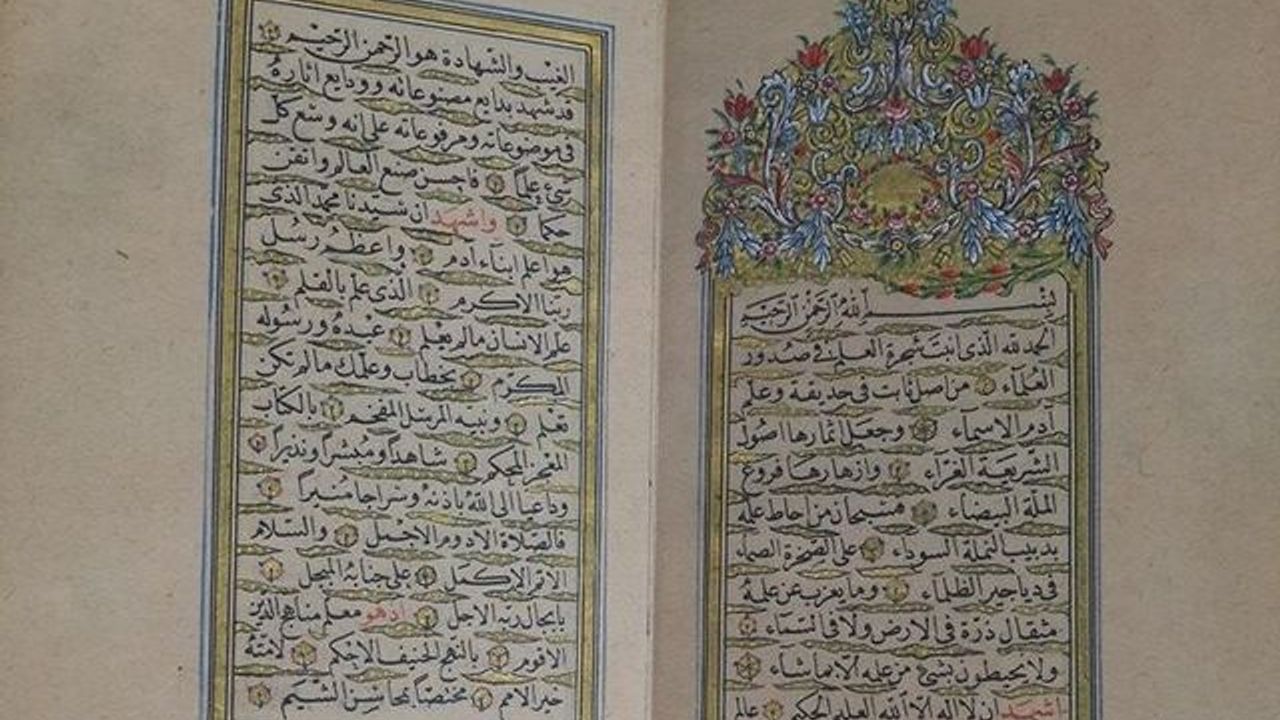 بسم الله الرحمن الرحيم
الحمد لله الذى انبت شجرة العلم فى صدور
العلماء من اصل ثابت فى حديقة وعلم
آدم الاسماء وجعل اثمارها اصول
الشريعة الغراء وازهارها فروع
الملة البيضاء فسبحان من احاط علمه
بدبيب النملة السوداء على الصخرة الصماء
فى دياجير الظلماء وما يعزب عن علمه
مثقال ذرة فى الارض ولا فى السماء
ولا يحيطون بشئ من علمه الا بما شاء
اشهد ان لا اله الا الله العليم الحكيم عالم
الغيب والشهادة هو الرحمن الرحيم
قد شهد بدايع مصنوعاته وودايع اثاره
فى موضوعاته ومرفوعاته على انه وسع كل
شئ علما فاحسن صنع العالم واتقن
حكما واشهد ان سيدنا محمد الذى
هو اعلم ابناء آدم واعظم رسل
ربنا الاكرم الذى علم بالقلم
علم الانسان مالم يعلم عبده ورسوله
المكرم بخطاب وعلمك مالم تكن
تعلم ونبيه المرسل المفخم بالكتاب
المعجز المحكم شاهدا ومبشرا ونذيرا
وداعيا الى الله باذنه وسراجا منيرا
فالصلاة الادوم الاجمل والسلام
الاقر الاكمل على جنابه المبجل
بابجال ربه الاجل اذ هو معلم مناهج الدين
الاقوم بالنهج الحنيف الاحكم لامته
خير الامم مختصا بمحاسن الشيم